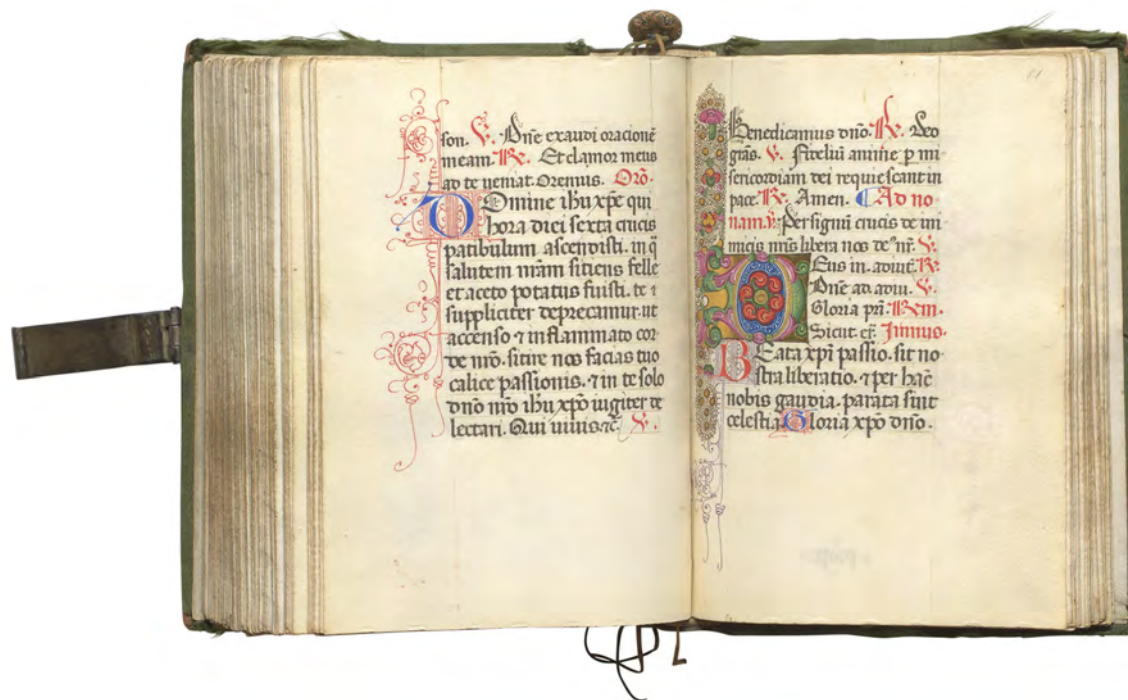 son. V. Dñe exaudi oracionē
meam. R. Et clamor meus
ad te ueniat. Oremus. Orō.
Domine ihu xpe qui
hora diei sexta crucis
patibulum ascendisti. in q̄
salutem nr̄am sitiens felle
et aceto potatus fuisti. te ⁊
suppliciter deprecamur. ut
accenso ⁊ inflammato cor
de nr̄o. sitire nos facias tuo
calice passionis. ⁊ in te solo
dn̄o nr̄o ihu xp̄o iugiter de
lectari. Qui uiuis ⁊c̄. V.
61
Benedicamus dño. R. Deo
gr̄as. V. Fideliū anime p̱ mi
sericordiam dei requiescant in
pace. R. Amen. Ad no
nam. v. Per signū crucis de ini
micis nr̄is libera nos de⁹ nr̄. V.
Deus in. adiut̄. R.
Dñe ad. adiu. V.
Gloria pr̄i. Rem.
Sicut. er̄. Jmnus.
Beata xp̄i passio. sit no
stra liberatio. ⁊ per hāc
nobis gaudia. parata sint
celestia. Gloria xp̄o dño.